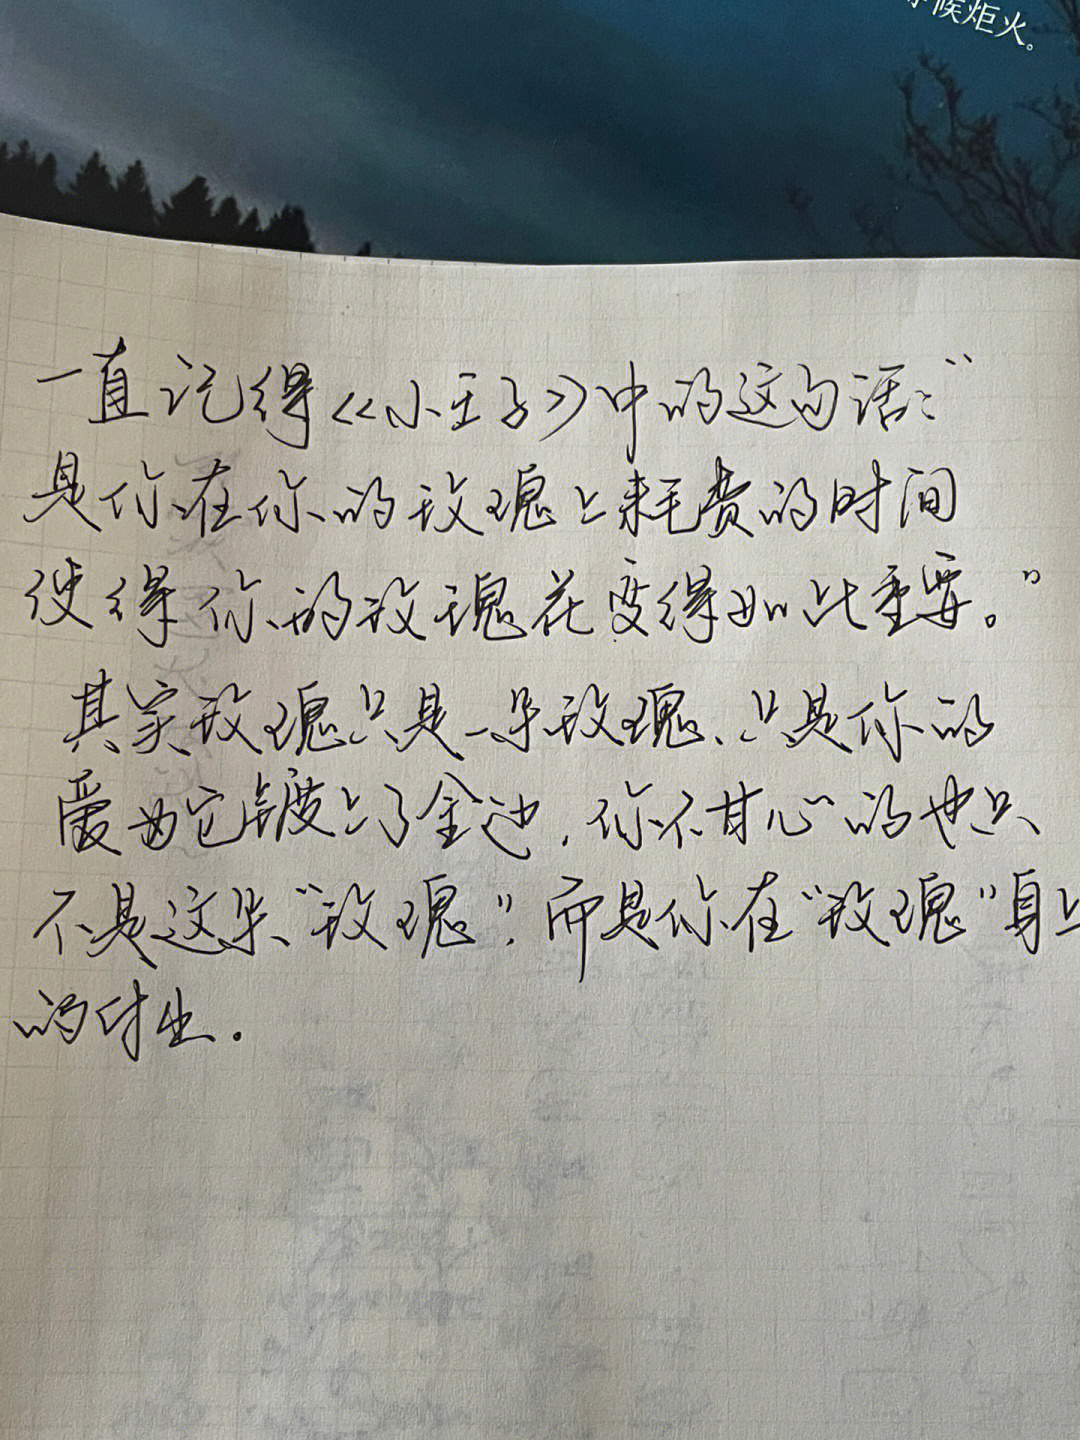 候炬火。
一直记得《小王子》中的这句话:“
是你在你的玫瑰上耗费的时间
使得你的玫瑰花变得如此重要。”
其实玫瑰只是一朵玫瑰、只是你的
爱为它镀上了金边,你不甘心的也只
不是这朵“玫瑰”,而是你在“玫瑰”身上
的付出.